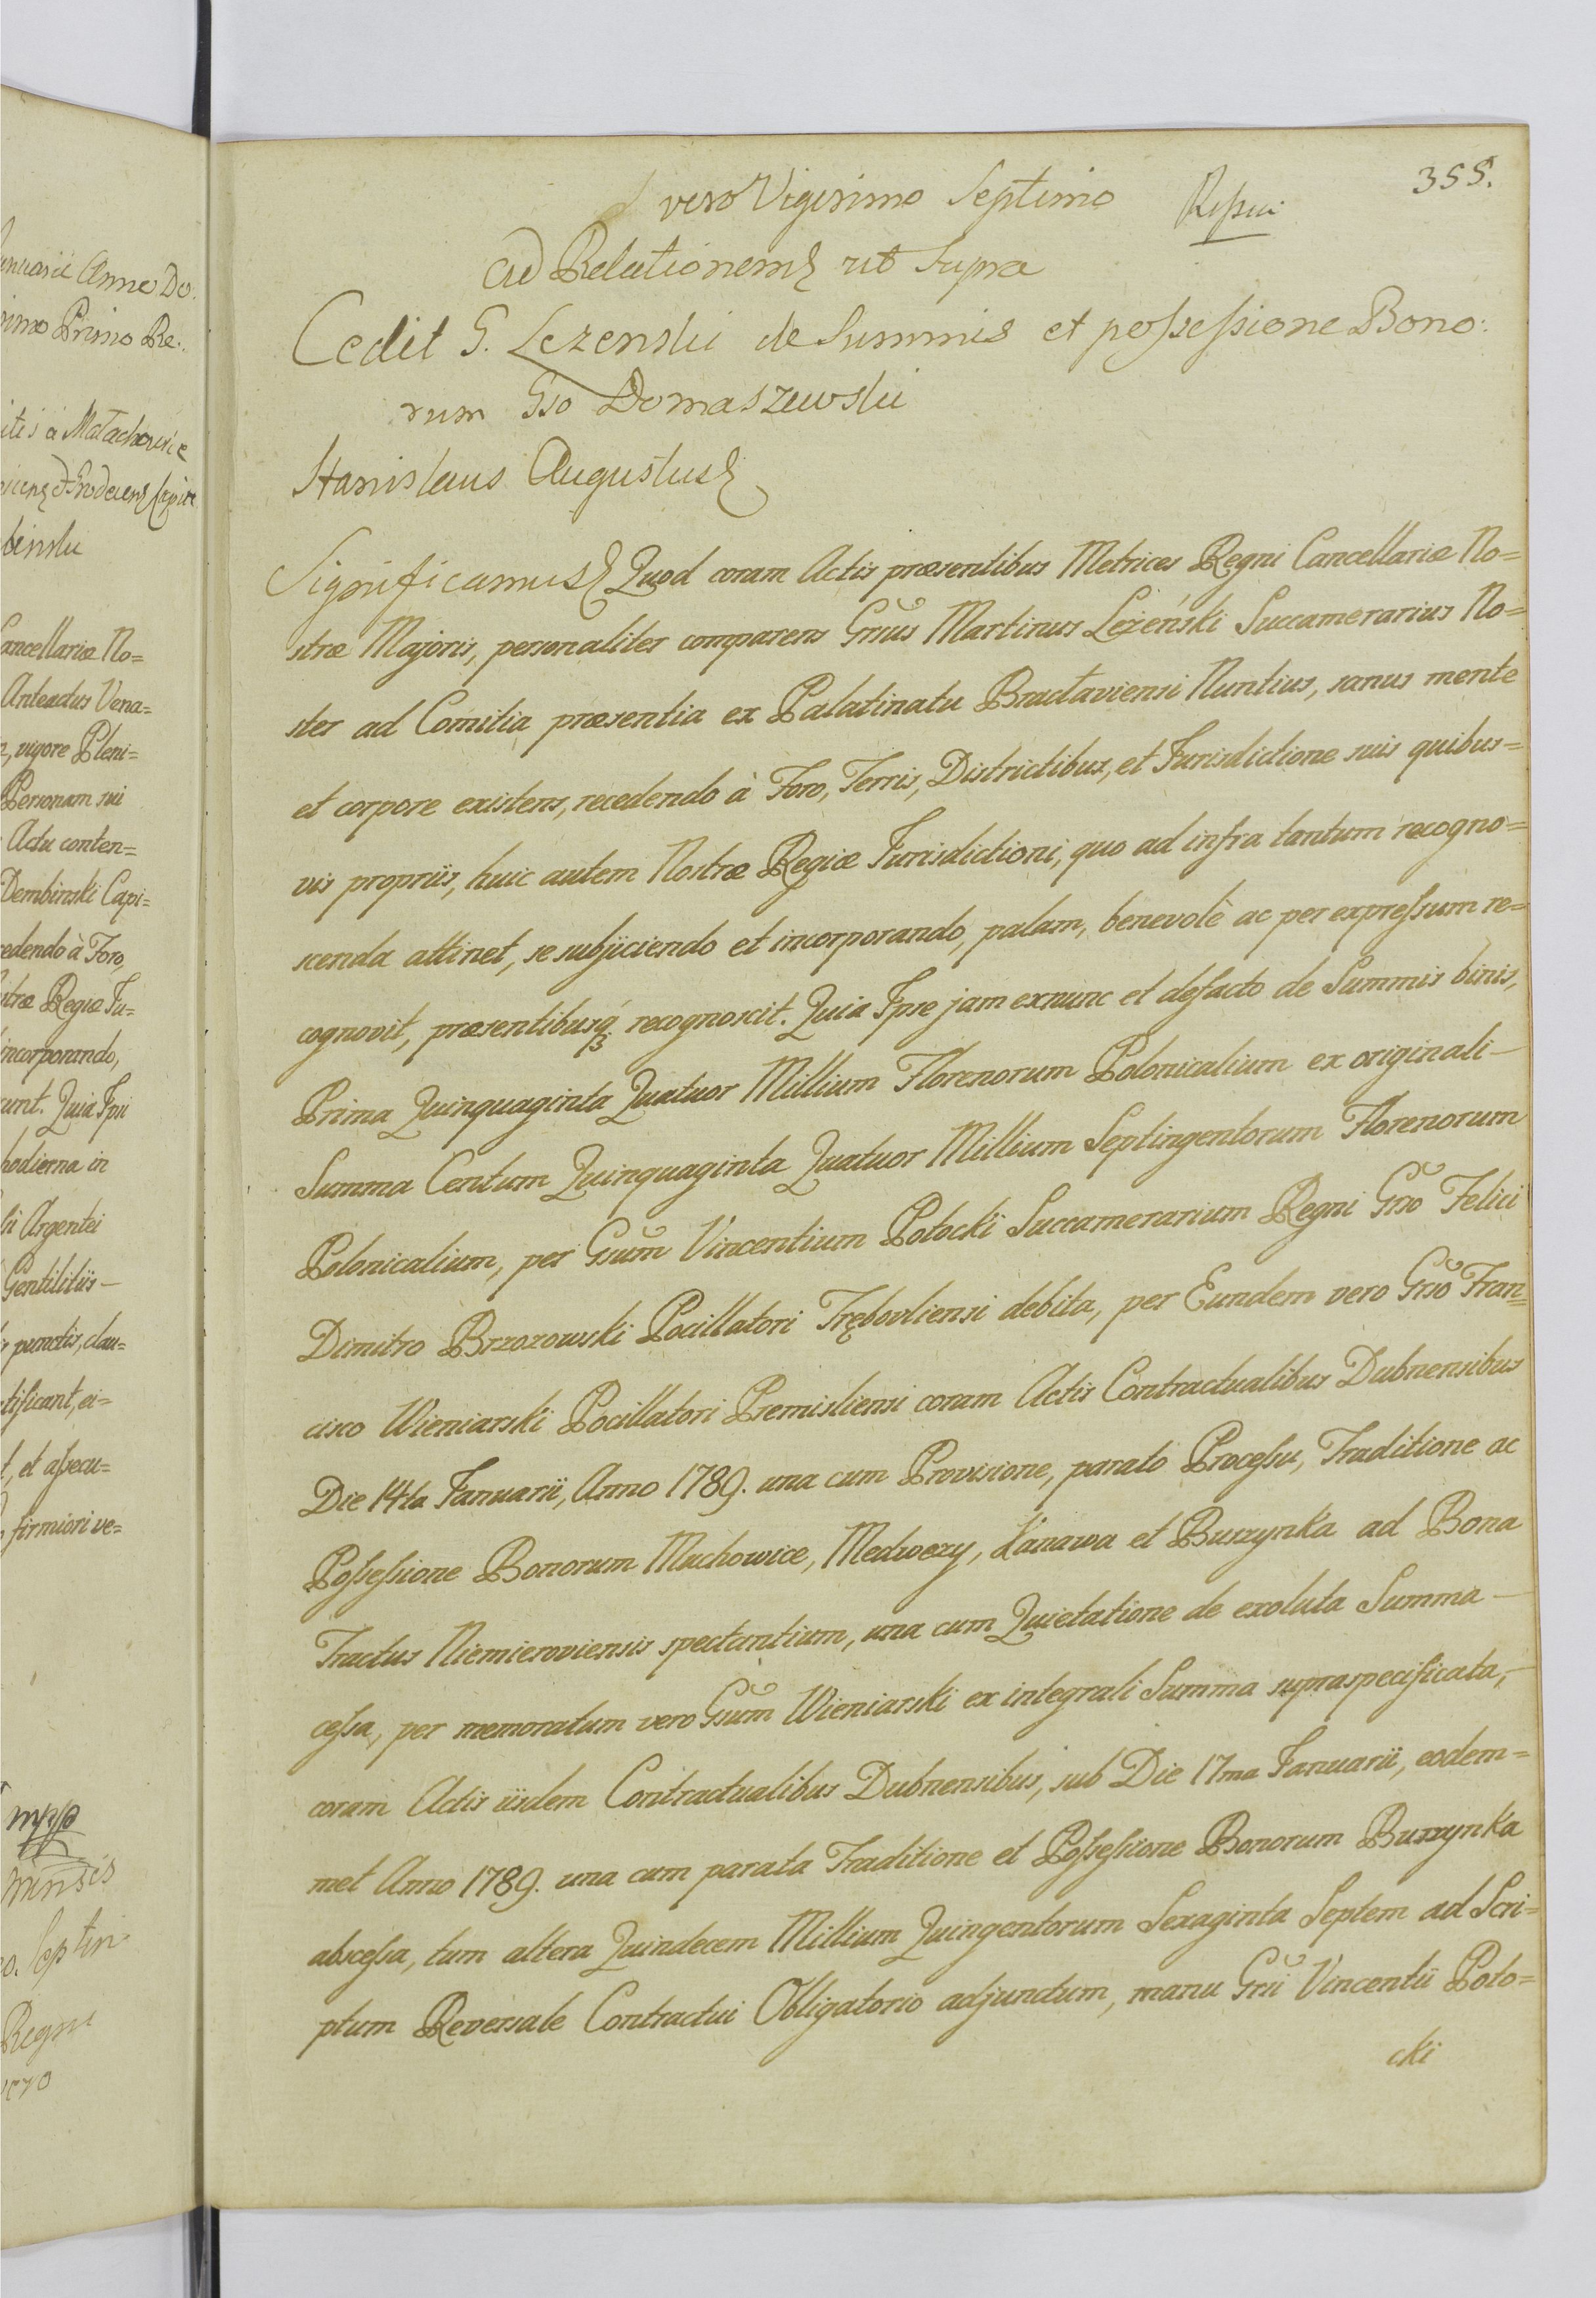 enuarii Anno Do.
rimo Primo Re:
itis à Małachowice
binski
Cancellariæ No=
Anteactus Vena=
vigore Pleni=
Personam sui
Actu conten=
Dembinski Capi=
cedendo à Foro,
stræ Regiæ Ju=
incorporando,
runt. Quia Ipsi
hodierna in
Argentei
Gentilitiis —
punctis, clau=
tificant, ei=
et assecu=
firmiori ve=
mpp
mensis
Septim
Regni
355.
vero Vigesimo Septimo
ad Relationem ut Supra
Cedit G. Lezenski de Summis et possessione Bono:
rum Gso Domaszewski
Stanislaus Augustus
Significamus Quod coram Actis præsentibus Metrices Regni Cancellariæ No=
stræ Majoris, personaliter comparens Grsus Martinus Leżeński Succamerarius No=
ster ad Comitia præsentia ex Palatinatu Bractaviensi Nuntius, sanus mente
et corpore existens, recedendo à Foro, Terris, Districtibus, et Jurisdictione suis quibus=
vis propriis, huic autem Nostræ Regiæ Jurisdictioni, quo ad infra tantum recogno=
scenda attinet, se subjiciendo et incorporando, palam, benevolè ac per expressum re=
cognovit, præsentibusq; recognoscit. Quia Ipse jam exnunc et defacto de Summis binis,
Prima Quinquaginta Quatuor Millium Florenorum Polonicalium ex originali —
Summa Centum Quinquaginta Quatuor Millium Septingentorum Florenorum
Polonicalium, per Gsum Vincentium Potocki Succamerarium Regni Grso Felici
Dimitro Brzozowski Pocillatori Trębovliensi debita, per Eundem vero Grso Fran=
cisco Wieniarski Pocillatori Premisliensi coram Actis Contractualibus Dubnensibus
Die 14ta Januarii, Anno 1789. una cum Provisione, parato Processu, Traditione ac
Possessione Bonorum Muchowice, Medwezy, Kanawa et Buszynka ad Bona
Tractus Niemieroviensis spectantium, una cum Quietatione de exoluta Summa —
cessa, per memoratum vero Gsum Wieniarski ex integrali Summa supraspecificata, —
coram Actis iisdem Contractualibus Dubnensibus, sub Die 17ma Januarii, eodem=
met Anno 1789. una cum parata Traditione et Possessione Bonorum Buszynka
abscessa, tum altera Quindecem Millium Quingentorum Sexaginta Septem ad Scri=
ptum Reversale Contractui Obligatorio adjunctum, manu Grsi Vincentii Poto=
cki